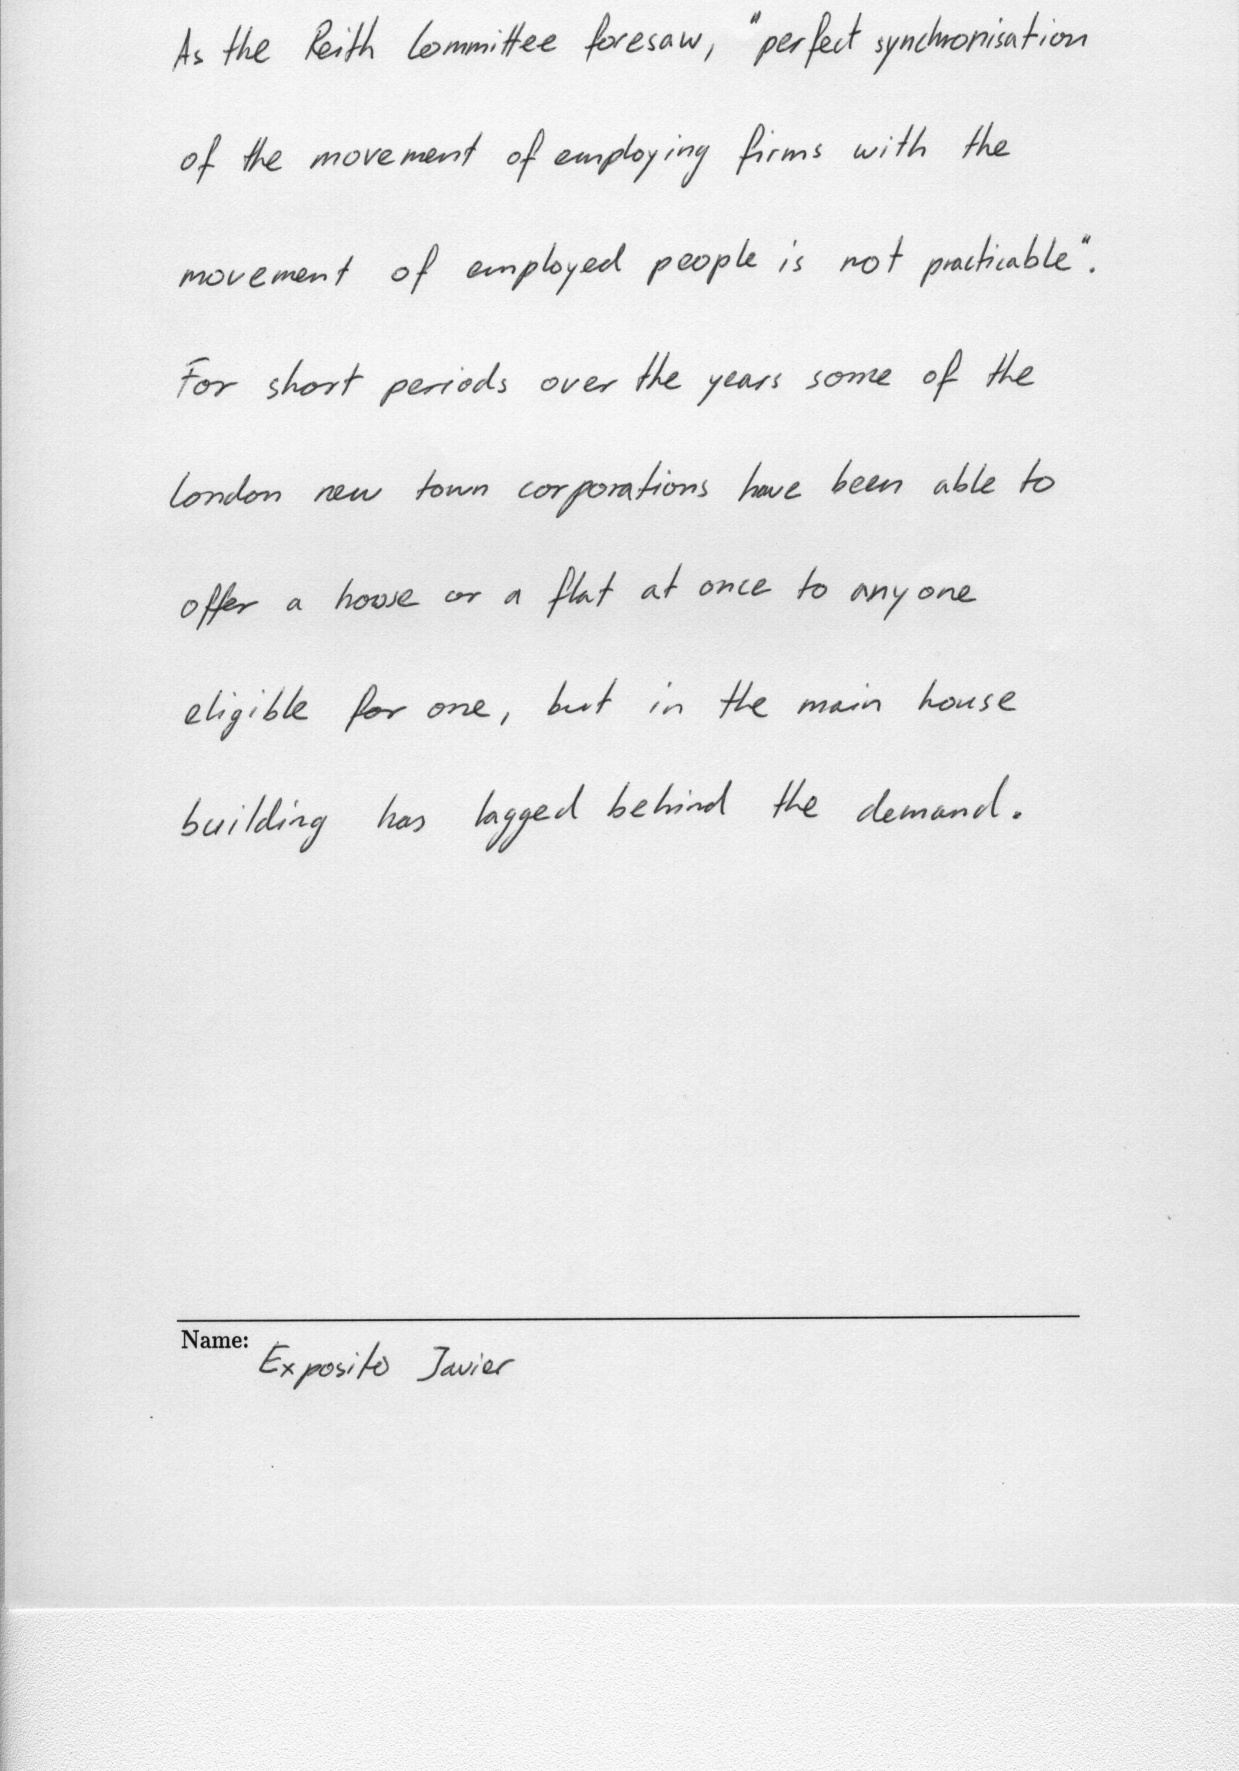 As the Reith Committee foresaw, "perfect synchronisation
of the movement of employing firms with the
movement of employed people is not practicable".
For short periods over the years some of the
London new town corporations have been able to
offer a house or a flat at once to anyone
eligible for one, but in the main house
building has lagged behind the demand.
Name:
Exposito Javier